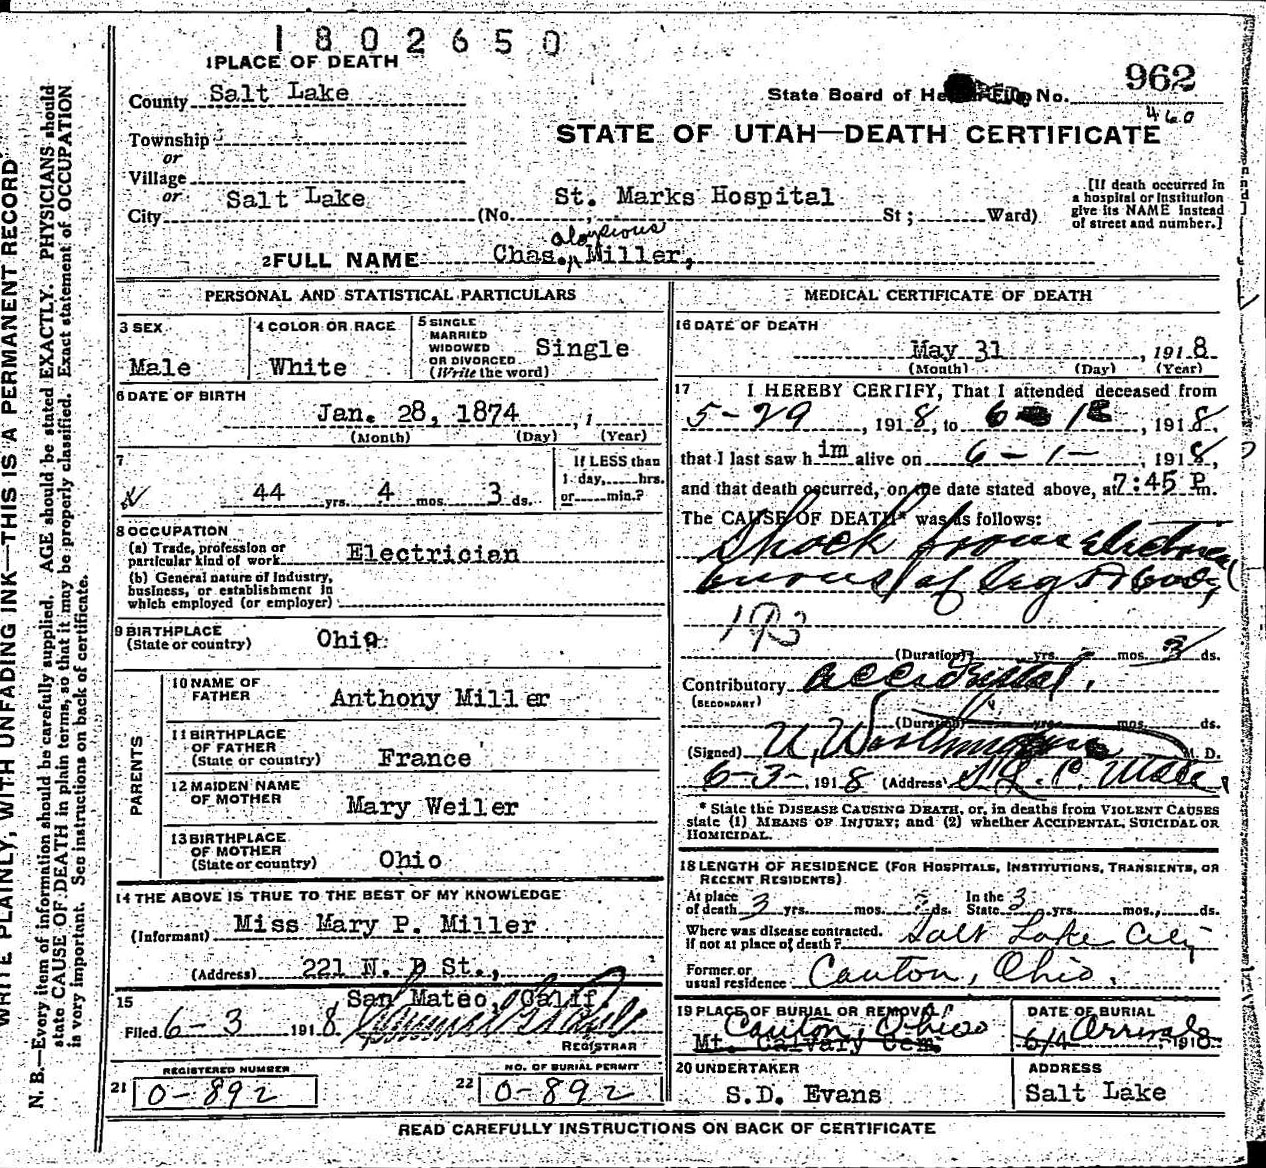 1802650
1 PLACE OF DEATH
County Salt Lake
State Board of Health File No. 962
460
Township
or
Village
or
City Salt Lake (No. St. Marks Hospital St; Ward)
STATE OF UTAH—DEATH CERTIFICATE
[If death occurred in
a hospital or institution
give its NAME instead
of street and number.]
2 FULL NAME Chas. Aloysious Miller,
PERSONAL AND STATISTICAL PARTICULARS
3 SEX
Male
4 COLOR OR RACE
White
5 SINGLE
MARRIED
WIDOWED
OR DIVORCED
(Write the word)
Single
6 DATE OF BIRTH
Jan. 28, 1874
(Month) (Day) (Year)
7
44 yrs. 4 mos. 3 ds.
If LESS than
1 day, hrs.
or min.?
8 OCCUPATION
(a) Trade, profession or
particular kind of work Electrician
(b) General nature of Industry,
business, or establishment in
which employed (or employer)
9 BIRTHPLACE
(State or country) Ohio
PARENTS
10 NAME OF
FATHER Anthony Miller
11 BIRTHPLACE
OF FATHER
(State or country) France
12 MAIDEN NAME
OF MOTHER Mary Weiler
13 BIRTHPLACE
OF MOTHER
(State or country) Ohio
14 THE ABOVE IS TRUE TO THE BEST OF MY KNOWLEDGE
(Informant) Miss Mary P. Miller
(Address) 221 N. D St.,
San Mateo, Calif.
15
Filed 6-3 1918
REGISTRAR
REGISTERED NUMBER
21 0-892
NO. OF BURIAL PERMIT
22 0-892
MEDICAL CERTIFICATE OF DEATH
16 DATE OF DEATH
May 31, 1918
(Month) (Day) (Year)
17 I HEREBY CERTIFY, That I attended deceased from
5-29, 1918, to 6 1, 1918,
that I last saw him alive on 6-1-, 1918,
and that death occurred, on the date stated above, at 7:45 P. m.
The CAUSE OF DEATH* was as follows:
Shock from electrical
burns of leg & body
(Duration) yrs. mos. 3 ds.
Contributory Accidental.
(SECONDARY)
(Duration) yrs. mos. ds.
(Signed) M. D.
6-3-, 1918 (Address) S. L. C. Utah.
* State the DISEASE CAUSING DEATH, or, in deaths from VIOLENT CAUSES
state (1) MEANS OF INJURY; and (2) whether ACCIDENTAL, SUICIDAL OR
HOMICIDAL.
18 LENGTH OF RESIDENCE (FOR HOSPITALS, INSTITUTIONS, TRANSIENTS, OR
RECENT RESIDENTS)
At place
of death 3 yrs. mos. ds. In the
State 3 yrs. mos. ds.
Where was disease contracted,
if not at place of death? Salt Lake City
Former or
usual residence Canton, Ohio.
19 PLACE OF BURIAL OR REMOVAL
Canton, Ohio
Mt. Calvary Cem.
DATE OF BURIAL
Arrival
6/4, 1918
20 UNDERTAKER
S.D. Evans
ADDRESS
Salt Lake
READ CAREFULLY INSTRUCTIONS ON BACK OF CERTIFICATE
WRITE PLAINLY, WITH UNFADING INK—THIS IS A PERMANENT RECORD
N. B.—Every item of information should be carefully supplied. AGE should be stated EXACTLY. PHYSICIANS should
state CAUSE OF DEATH in plain terms, so that it may be properly classified. Exact statement of OCCUPATION
is very important. See instructions on back of certificate.